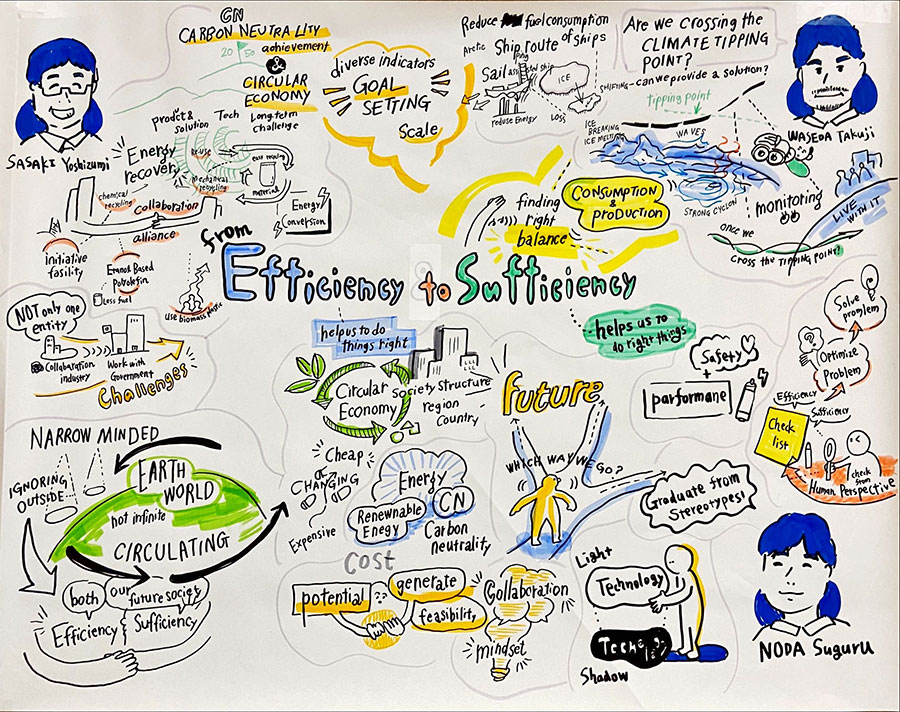 CN
CARBON NEUTRALITY
2050
achievement
&
CIRCULAR
ECONOMY
Long-term
challenge
SASAKI Yoshizumi
product &
solution
Tech
Energy
recovery
Re-use
chemical
recycling
mechanical
recycling
material
collaboration
alliance
Energy
Conversion
initiative
fasility
Less fuel
Use biomass
NOT only one
entity
Collaboration
industry
Work with
Government
Challenges
diverse indicators
GOAL
SETTING
Scale
Reduce fuel consumption
of ships
Arctic
Ship route
Sail
ship
ICE
reduse Energy
Loss
Are we crossing the
CLIMATE TIPPING
POINT?
SHIFTING - can we provide a solution?
tipping point
WASEDA Takuji
ICE
BREAKING
ICE MELTING
WAVES
STRONG CYCLON
monitoring
LIVE
WITH IT
once we
CROSS THE TIPPING POINT?
finding
right
balance
CONSUMPTION
&
PRODUCTION
from
Efficiency to Sufficiency
helps us to do
things right
helps us to
do right things
Circular
Economy
Society Structure
region
Country
Cheap
CHANGING
Expensive
Energy
Renewnable
Enegy
CN
Carbon
neutrality
COST
potential
??
generate
feasibility
Collaboration
mindset
future
WHICH WAY WE GO?
Graduate from
Stereotypes!
Safety
+
parformane
Solve
promlem
Optimize
Problem
Efficiency
Sufficiency
Check
list
check
from
Human Perspective
NARROW MINDED
IGNORING
OUTSIDE
EARTH
WORLD
not infinite
CIRCULATING
both
our
future society
Efficiency
Sufficiency
Light
Technology
Shadow
NODA Suguru